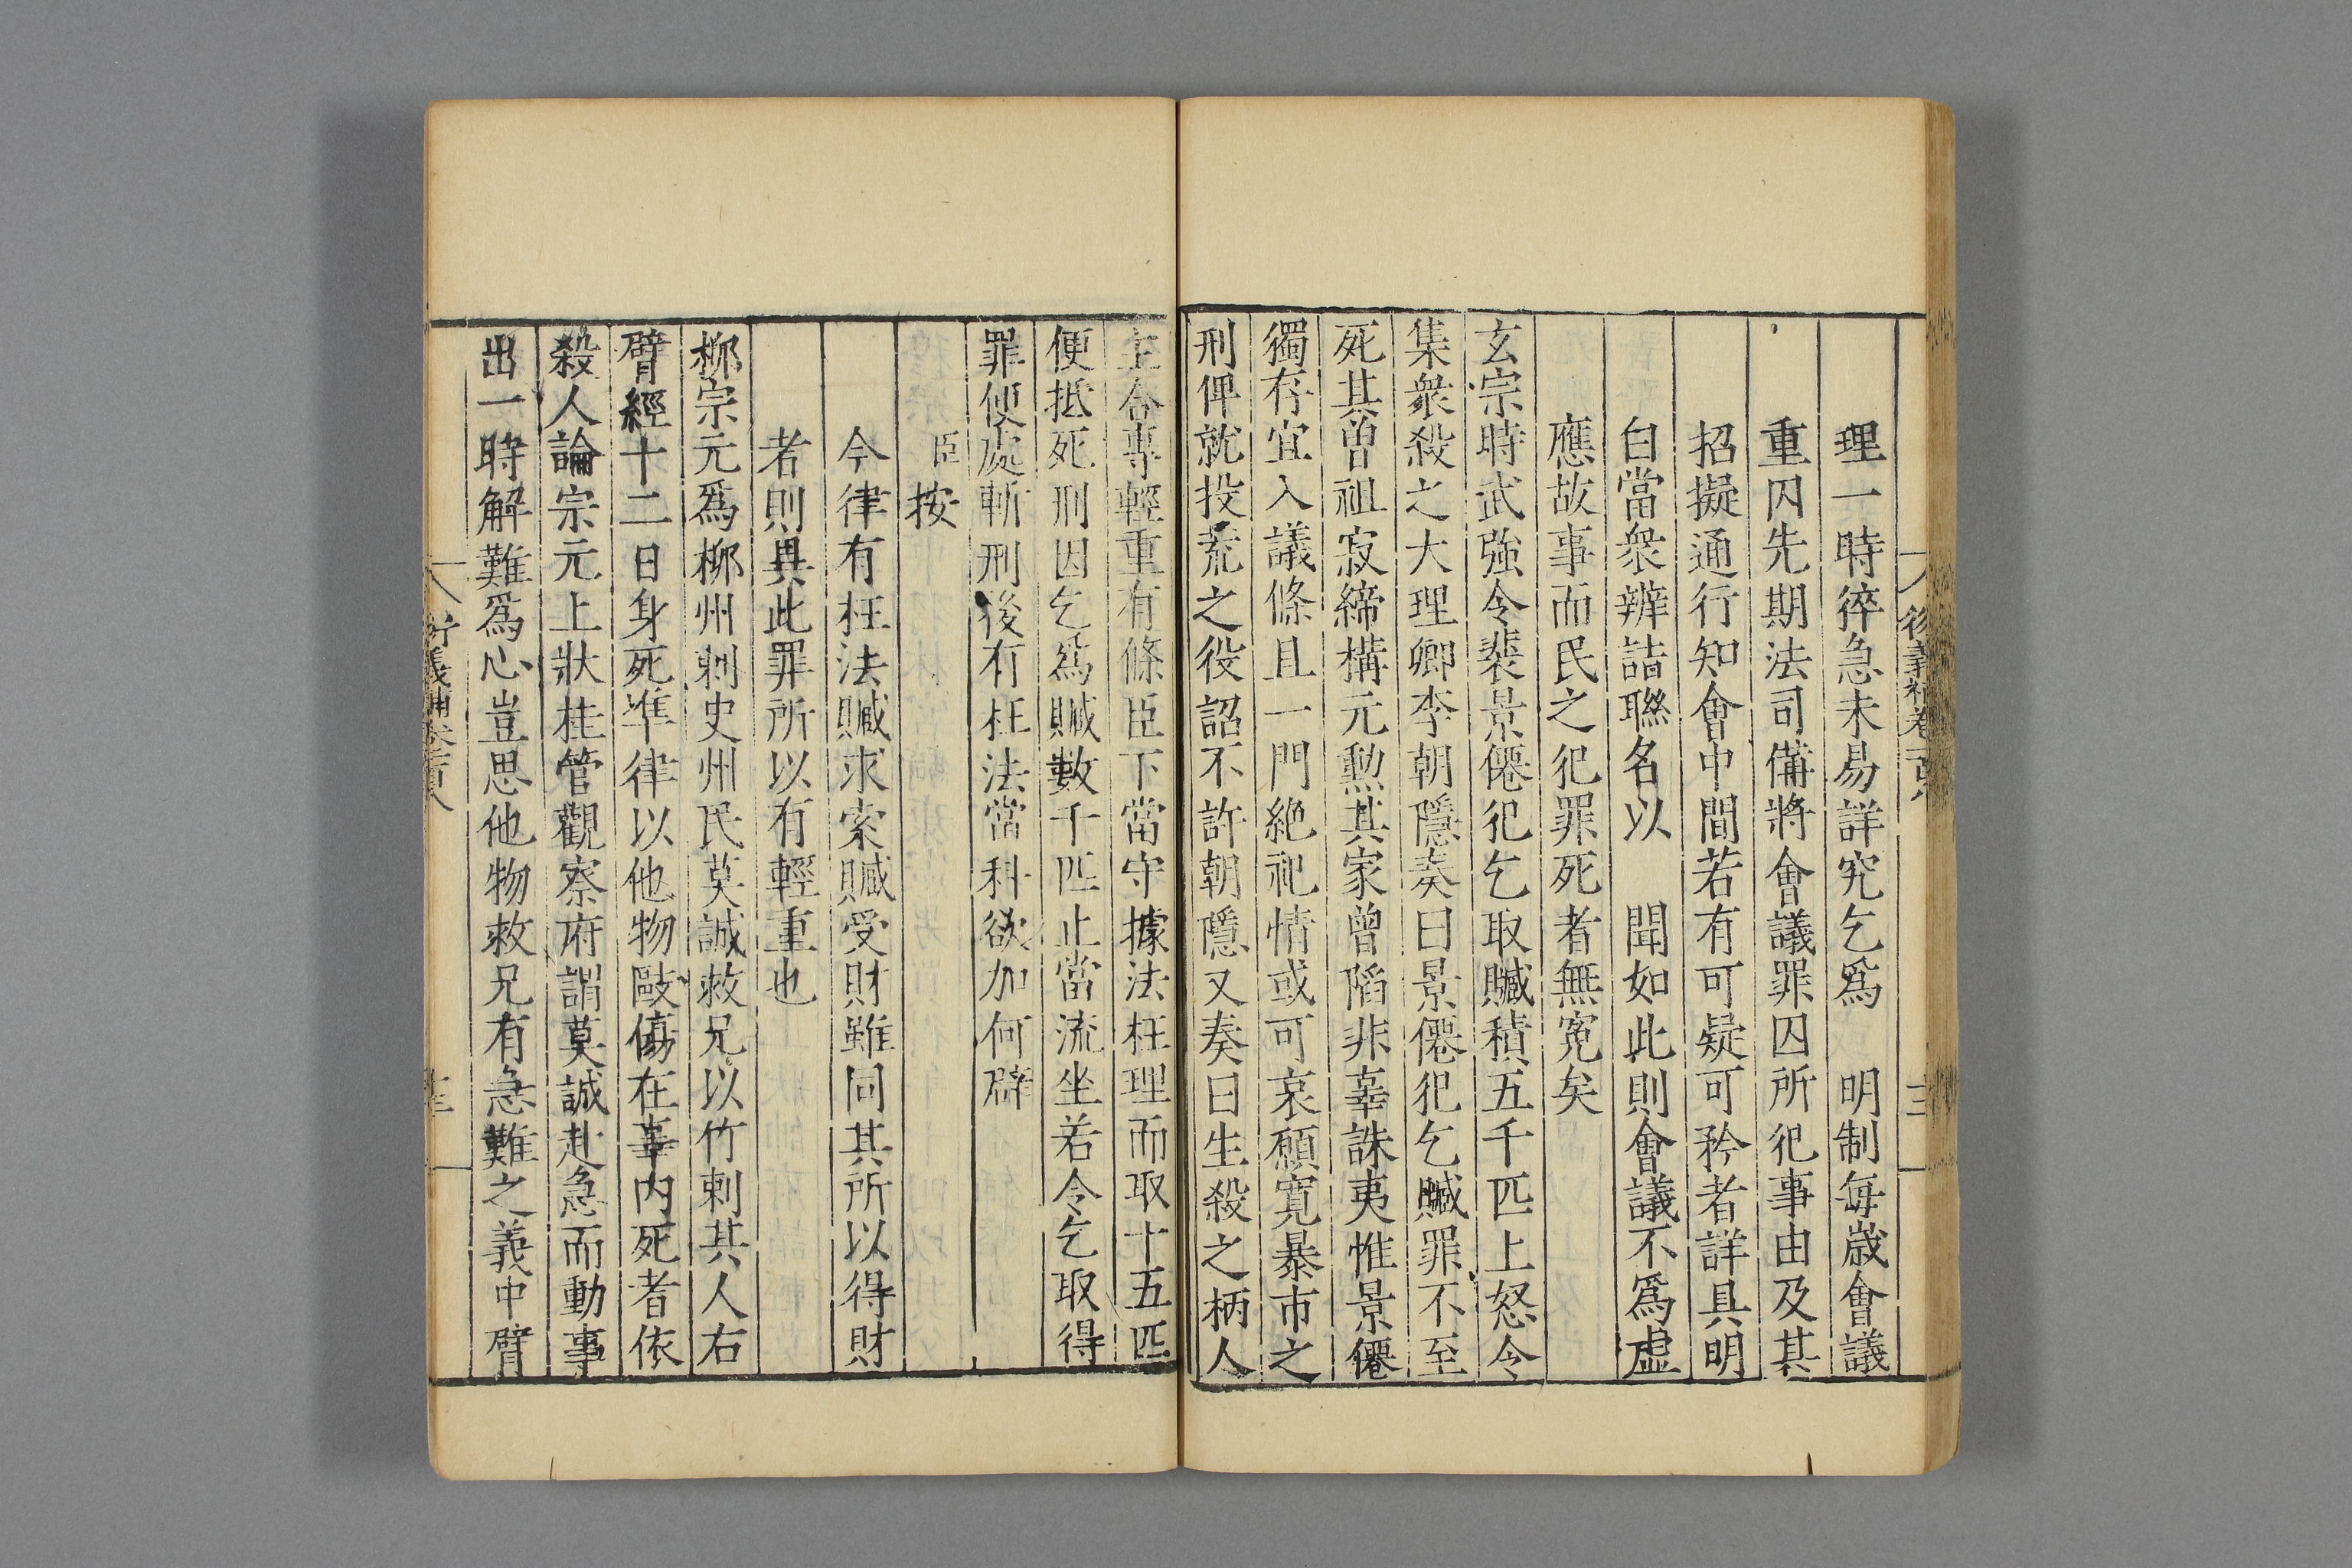 理一時猝急未易詳究乞爲　明制每歲會議
重囚先期法司備將會議罪囚所犯事由及其
招擬通行知會中間若有可疑可矜者詳具明
白當衆辨詰聯名以　聞如此則會議不爲虛
應故事而民之犯罪死者無寃矣
玄宗時武強令裴景僊犯乞取贓積五千匹上怒令
集衆殺之大理卿李朝隱奏曰景僊犯乞贓罪不至
死其曽祖寂締構元勲其家曾陷非辜誅夷惟景僊
獨存宜入議條且一門絶祀情或可哀願寬暴市之
刑俾就投荒之役詔不許朝隱又奏曰生殺之柄人
主合專輕重有條臣下當守據法枉理而取十五匹
便抵死刑因乞爲贓數千匹止當流坐若令乞取得
罪便處斬刑後有枉法當科欲加何辟
臣按
今律有枉法贓求索贓受財雖同其所以得財
者則異此罪所以有輕重也
柳宗元爲柳州刺史州民莫誠救兄以竹刺其人右
臂經十二日身死準律以他物毆傷在辜内死者依
殺人論宗元上狀桂管觀察府謂莫誠赴急而動事
出一時解難爲心豈思他物救兄有急難之義中臂